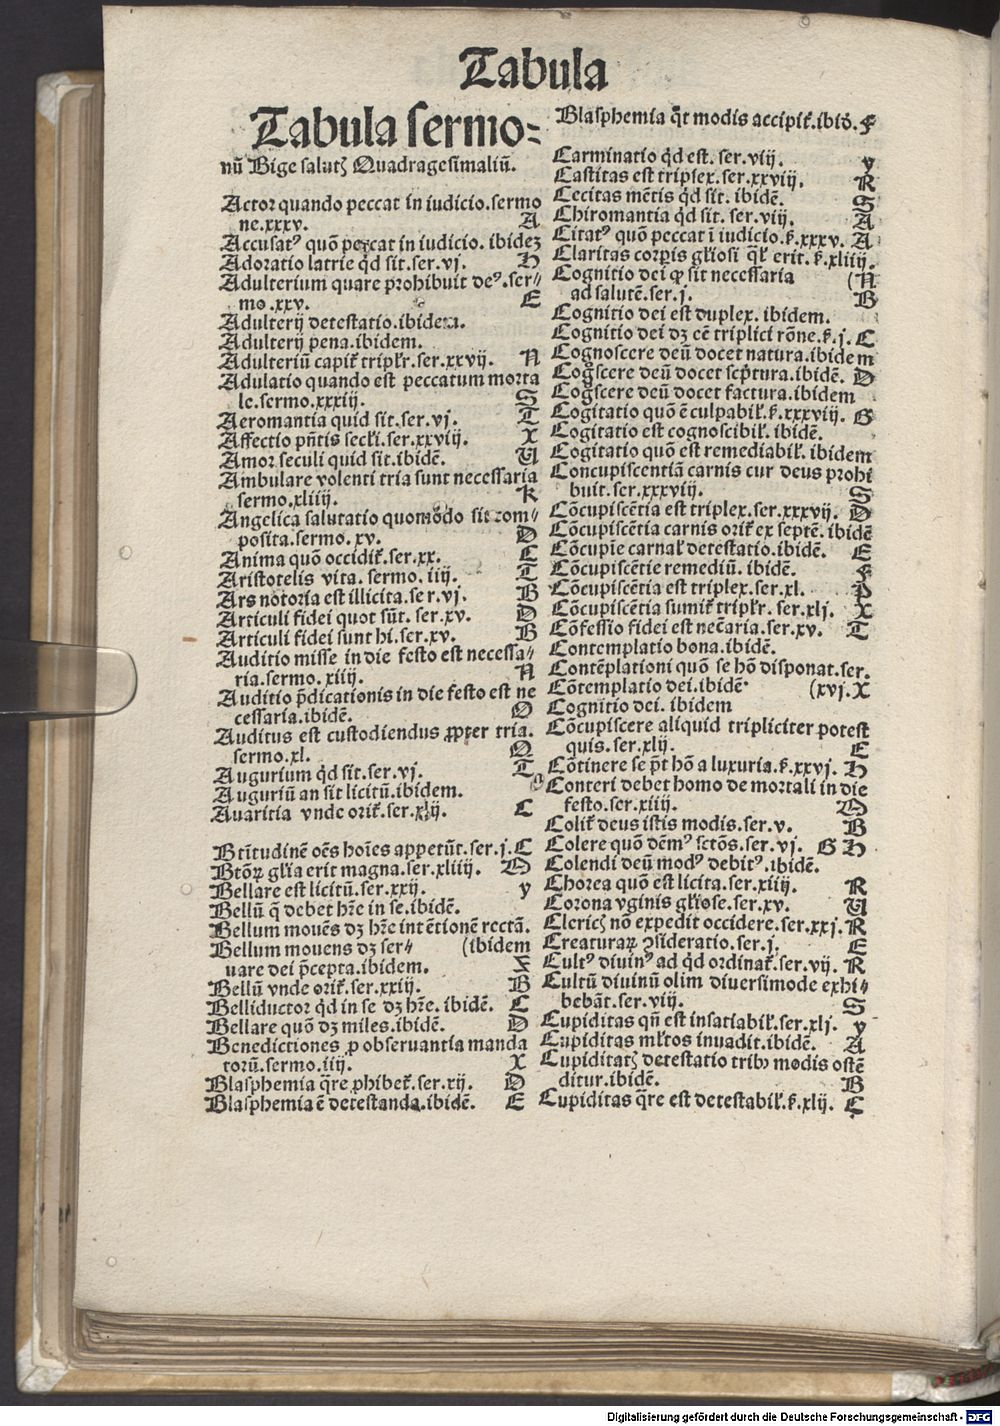 Tabula
Tabula sermo-
nũ Bige salutꝫ Quadragesimaliũ.
Actor quando peccat in iudicio.sermo
ne.xxxv. A
Accusatꝰ quõ peccat in iudicio. ibideꝫ
Adoratio latrie qd sit.ser.vj. H
Adulterium quare prohibuit deꝰ.ser-
mo.xxv. E
Adulterij detestatio.ibidem.
Adulterij pena.ibidem.
Adulteriũ capit̉ triplr̉.ser.xxvij. N
Adulatio quando est peccatum morta
le.sermo.xxxiij. S
Aeromantia quid sit.ser.vj. T
Affectio pñtis secl̉i.ser.xxviij. X
Amor seculi quid sit.ibidẽ. U
Ambulare volenti tria sunt necessaria
sermo.xliiij. K
Angelica salutatio quomõdo sit com-
posita.sermo.xv. D
Anima quõ occidit̉.ser.xx. C
Aristotelis vita. sermo. iij. T
Ars notoria est illicita.ser.vj. B
Articuli fidei quot sũt. ser.xv. D
Articuli fidei sunt hi.ser.xv. B
Auditio misse in die festo est necessa-
ria.sermo. xiiij. N
Auditio p̃dicationis in die festo est ne
cessaria.ibidẽ. O
Auditus est custodiendus ꝓpter tria.
sermo.xl. Q
Augurium qd sit.ser.vj. T
Auguriũ an sit licitũ.ibidem.
Auaritia vnde orit̉.ser.xlij. C
Bti̇tudinẽ oẽs hoi̇es appetũt.ser.j. C
Btõꝝ gl̉ia erit magna.ser.xliiij. M
Bellare est licitũ.ser.xxij. y
Bellũ q̃ debet hr̃e in se.ibidẽ.
Bellum mouẽs dꝫ hr̃e intẽtionẽ rectã.
Bellum mouens dꝫ ser- (ibidem
uare dei p̃cepta.ibidem.
Bellũ vnde orit̉.ser.xxiij. B
Belliductor qd in se dꝫ hr̃e. ibidẽ. C
Bellare quõ dꝫ miles.ibidẽ. D
Benedictiones ꝓ obseruantia manda
torũ.sermo.iij. X
Blasphemia q̃re ꝓhibet̉.ser.xij. D
Blasphemia ẽ detestanda.ibidẽ. E
Blasphemia q̃t modis accipit̉.ibid̃. F
Carminatio qd est. ser.vij. y
Castitas est triplex.ser.xxviij. R
Cecitas mẽtis qd sit. ibidẽ. S
Chiromantia qd sit. ser.viij. A
Citatꝰ quõ peccat ĩ iudicio.ẜ.xxxv. A
Claritas corp̉is gl̉iosi q̃l̉ erit. ẜ.xliiij.
Cognitio dei ꝙ sit necessaria (N
ad salutẽ.ser.j. B
Cognitio dei est duplex. ibidem.
Cognitio dei dꝫ cẽ triplici rõne.ẜ.j. C
Cognoscere deũ docet natura.ibidem
Cog̃scere deũ docet scp̃tura.ibidẽ. D
Cog̃scere deũ docet factura.ibidem
Cogitatio quõ ẽ culpabil̉.ẜ.xxxviij. G
Cogitatio est cognoscibil̉. ibidẽ.
Cogitatio quõ est remediabil̉. ibidem
Concupiscentiã carnis cur deus prohi
buit.ser.xxxvij. S
Cõcupiscẽtia est triplex.ser.xxxvij. D
Cõcupiscẽtia carnis orit̉ ex septẽ. ibidẽ
Cõcupi̇e carnal̉ detestatio.ibidẽ. E
Cõcupiscẽtie remediũ. ibidẽ. F
Cõcupiscẽtia est triplex.ser.xl. P
Cõcupiscẽtia sumit̉ triplr̉. ser.xlj. X
Cõfessio fidei est necẽaria.ser.xv. T
Contemplatio bona.ibidẽ.
Contẽplationi quõ se hõ disponat.ser.
Cõtemplatio dei.ibidẽ (xvj. X
Cognitio dei. ibidem
Cõcupiscere aliquid tripliciter potest
quis.ser.xlij. E
Cõtinere se p̃t hõ a luxuria.ẜ.xxvj. H
Conteri debet homo de mortali in die
festo.ser.xiiij. M
Colit̉ deus istis modis.ser.v. B
Colere quõ dẽmꝰ sctõs.ser.vj. G H
Colendi deũ modꝰ debitꝰ.ibidẽ.
Chorea quõ est licita.ser.xiiij. R
Corona vginis gl̉iose.ser.xv. U
Clericꝫ nõ expedit occidere.ser.xxj. R
Creaturaꝝ ꝯsideratio.ser.j. E
Cultꝰ diuinꝰ ad qd ordinat̉.ser.vij. R
Cultũ diuinũ olim diuersimode exhi-
bebãt.ser.viij. S
Cupiditas qñ est insatiabil̉.ser.xlj. y
Cupiditas ml̉tos inuadit.ibidẽ. A
Cupiditatꝫ detestatio tribꝰ modis ostẽ
ditur.ibidẽ. B
Cupiditas q̃re est detestabil̉.ẜ.xlij. C
Digitalisierung gefördert durch die Deutsche Forschungsgemeinschaft - DFG